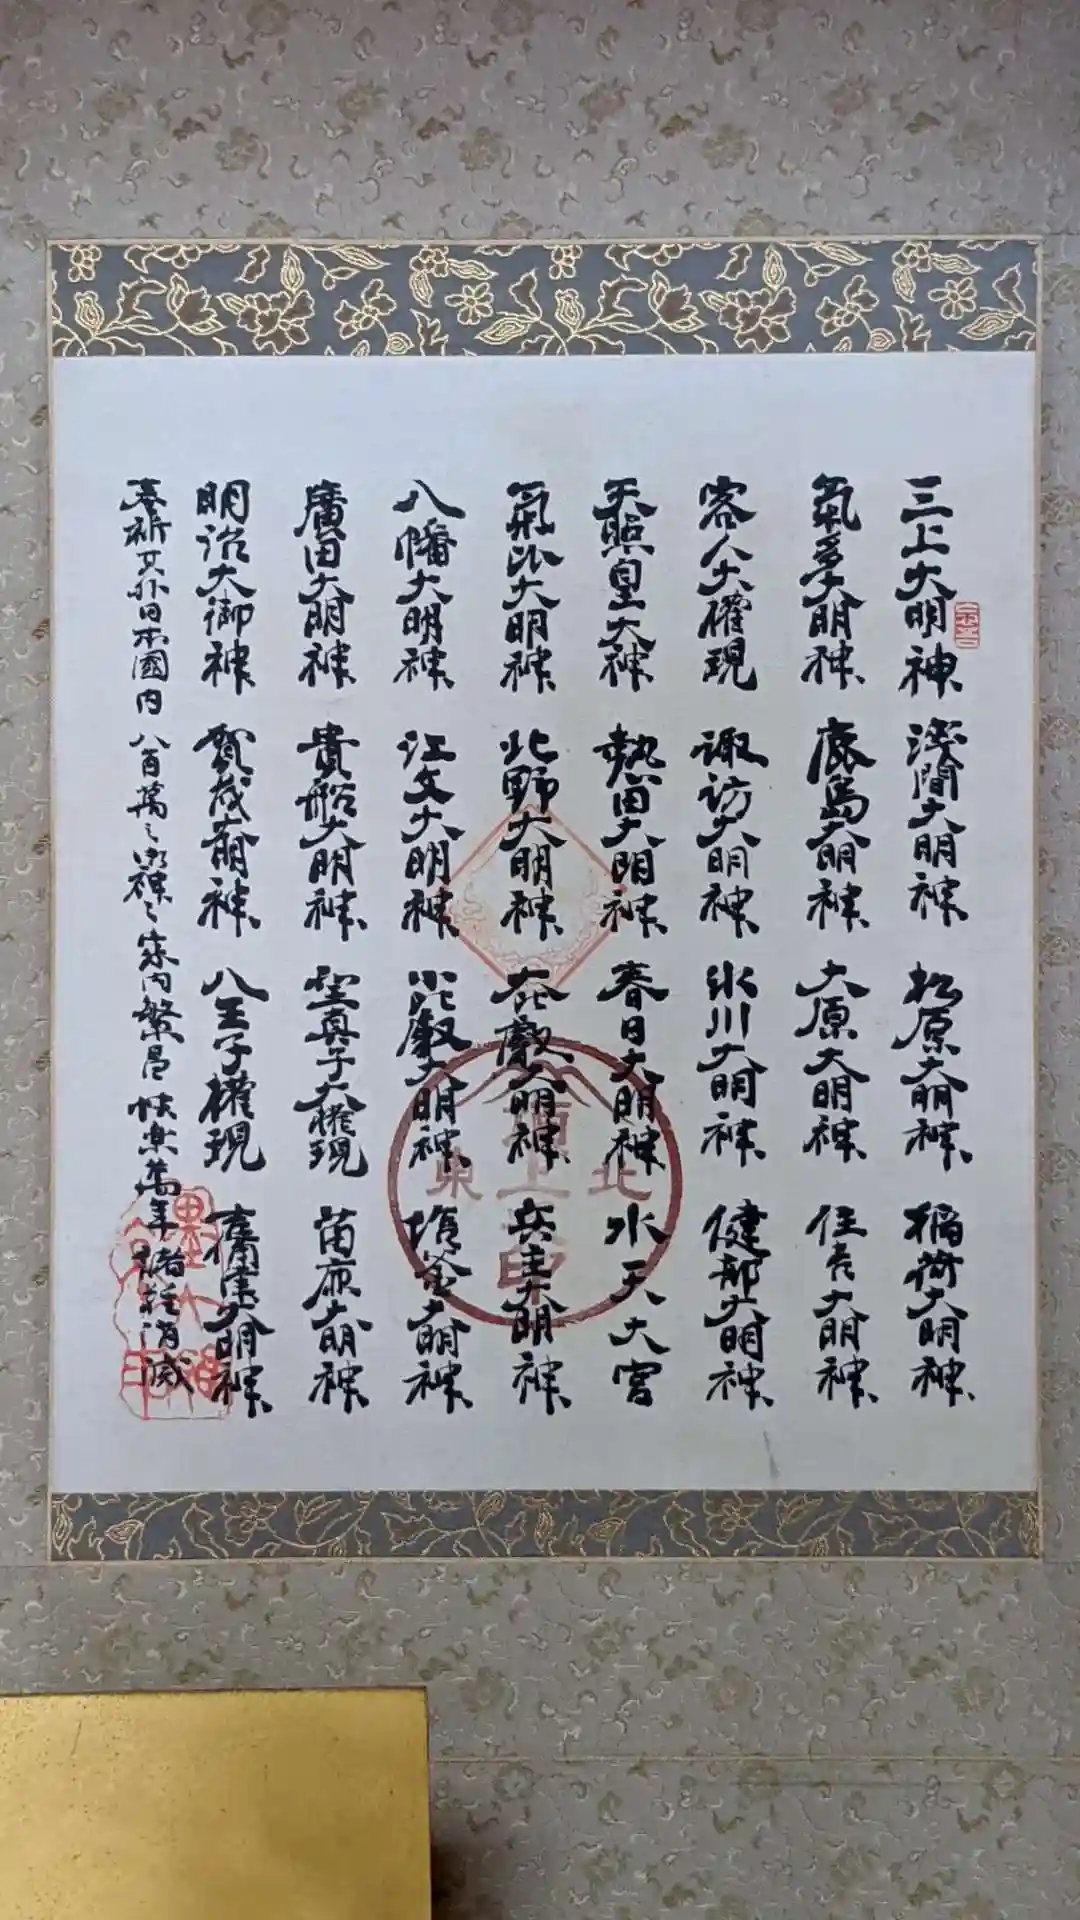 三上大明神 淺間大明神 松原大明神 稲荷大明神
氣多大明神 鹿島大明神 大原大明神 住吉大明神
客人大権現 諏訪大明神 氷川大明神 健部大明神
天照皇大神 熱田大明神 春日大明神 水天大宮
氣比大明神 北野大明神 大比叡大明神 兵主大明神
八幡大明神 江文大明神 小比叡大明神 塩釜大明神
廣田大明神 貴船大明神 聖真子大権現 苗鹿大明神
明治大御神 賀茂大明神 八王子権現 大明神
奉祈其外日本國内 八百萬之 神々 家内繁昌 快楽萬年 諸 消滅
頂上印
東
北